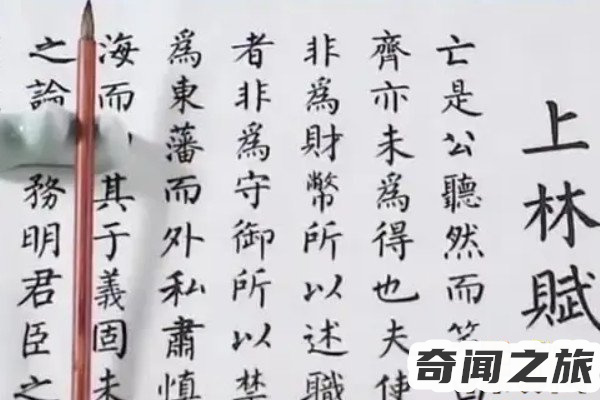 上林賦
亡是公聽然而笑曰
齊亦未爲得也夫使
非爲財幣所以述職
者非爲守御所以禁
爲東藩而外私肅慎
海而其于義固未
之論務明君臣之
奇闻之旅